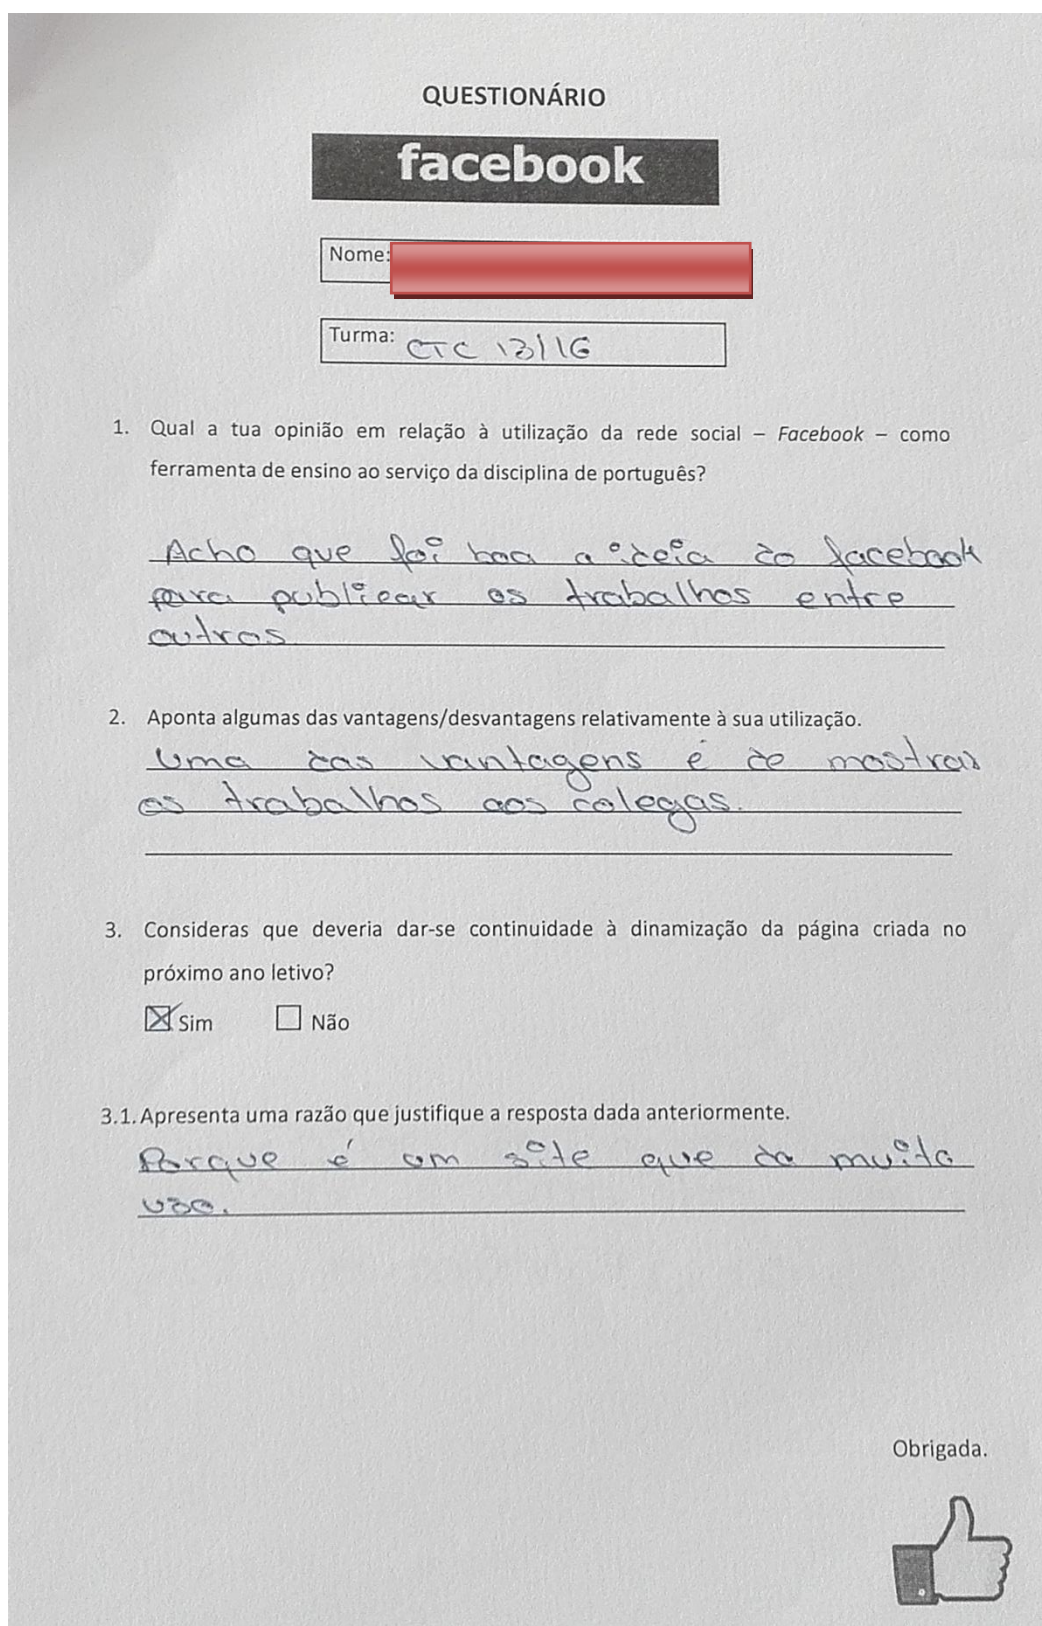 QUESTIONÁRIO
facebook
Nome:
Turma: CTC 13/16
1. Qual a tua opinião em relação à utilização da rede social – Facebook – como
ferramenta de ensino ao serviço da disciplina de português?
Acho que foi boa a ideia do facebook
para publicar os trabalhos entre
outros
2. Aponta algumas das vantagens/desvantagens relativamente à sua utilização.
Uma das vantagens é de mostrar
os trabalhos aos colegas.
3. Consideras que deveria dar-se continuidade à dinamização da página criada no
próximo ano letivo?
Sim Não
3.1. Apresenta uma razão que justifique a resposta dada anteriormente.
Porque é um site que da muito
uso.
Obrigada.